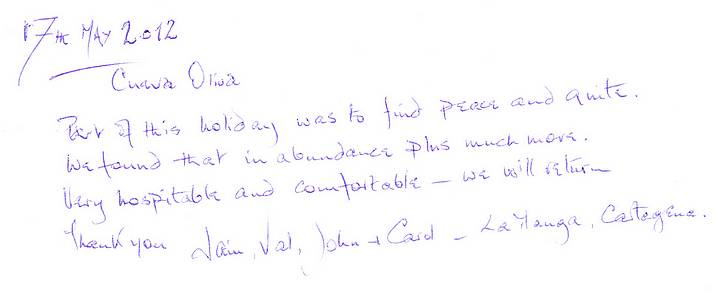 17TH MAY 2012
Cueva Oliva
Part of this holiday was to find peace and quite.
We found that in abundance plus much more.
Very hospitable and comfortable – we will return
Thank you Iain, Val, John + Carol – La Manga, Cartagena.